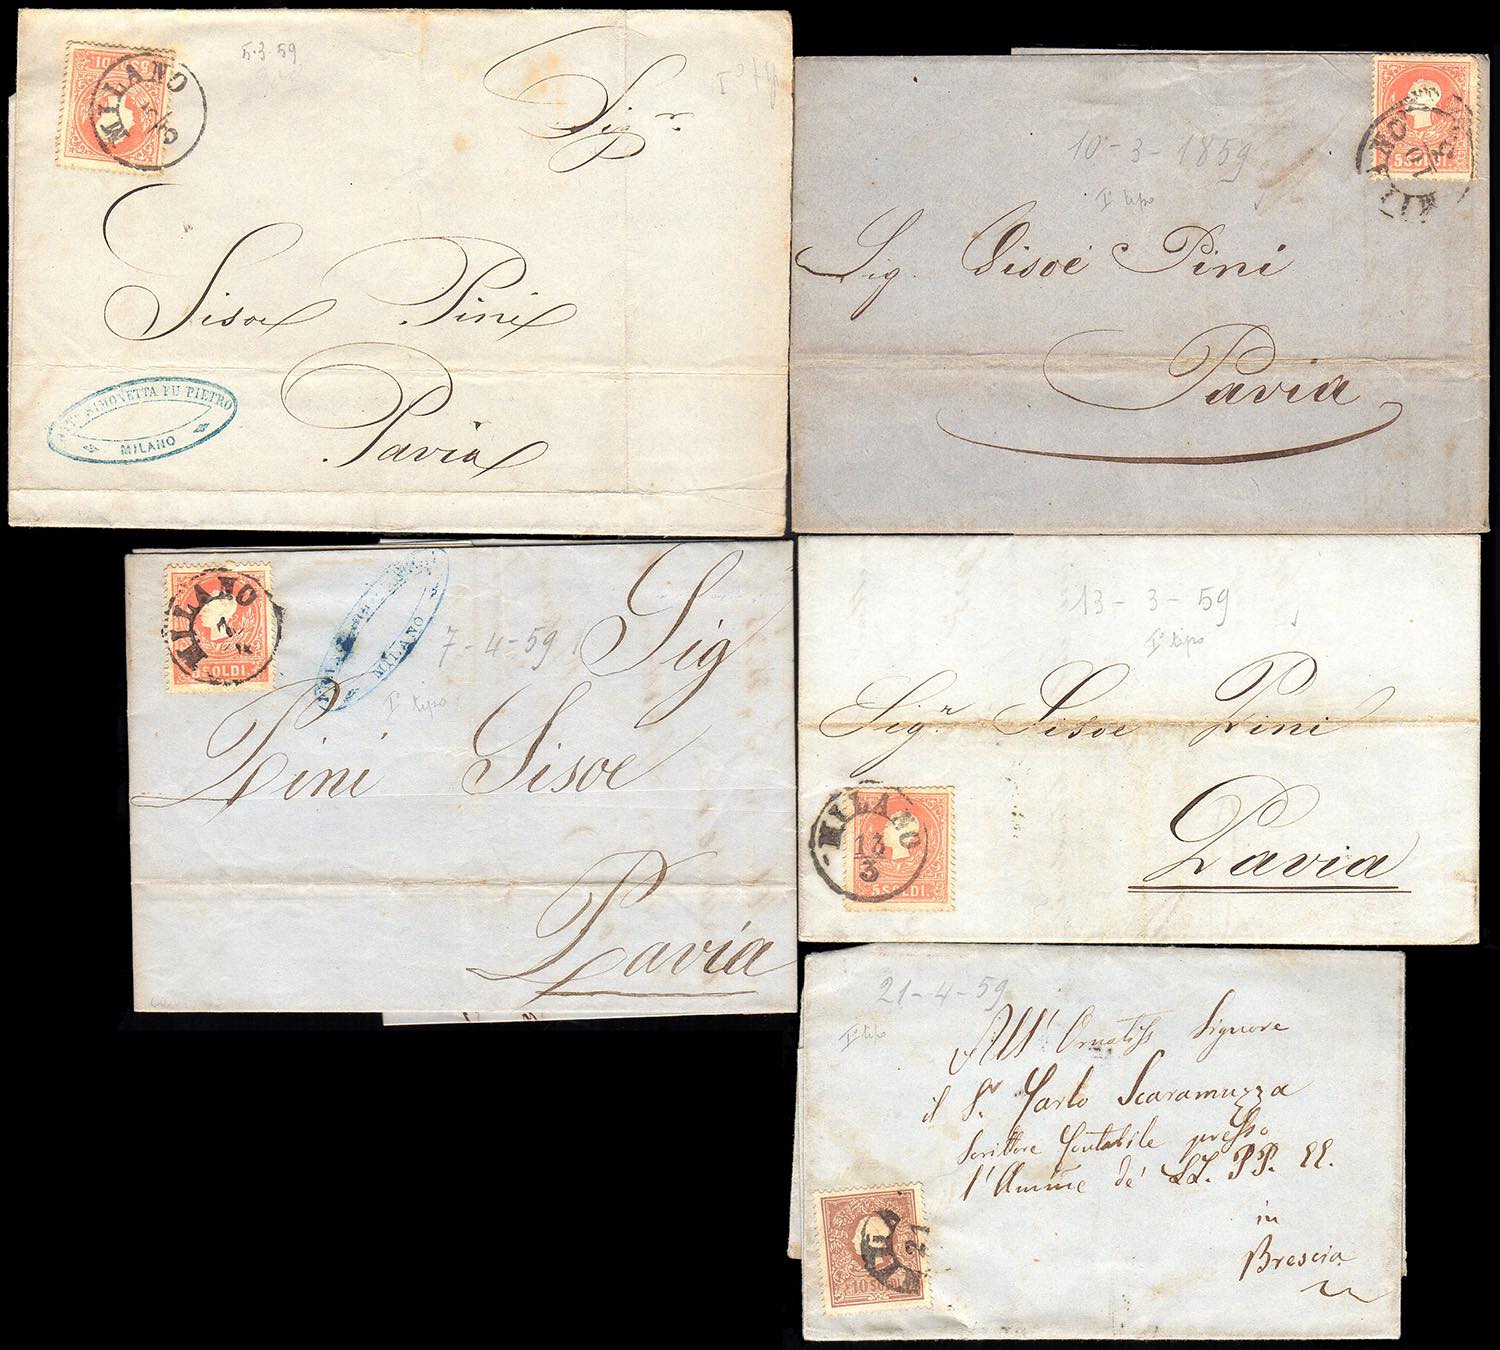 5.3.59
5 SOLDI
MILANO
5/3
Sig.r
Sisoe Pini
Pavia
SIMONETTA FU PIETRO
MILANO
10-3-1859
I° tipo
MILANO
10/3
5 SOLDI.
Sig. Sisoe Pini
Pavia
MILANO
7
5 SOLDI
MILANO
7-4-59
I° tipo
Sig
Pini Sisoe
Pavia
13-3-59
I° tipo
Sig.r Sisoe Pini
MILANO
13/3
5 SOLDI.
Pavia
21-4-59
I° tipo
All' Ornatiss Signore
il Sr Carlo Scaramuzza
Scrittore Contabile presso
l'Amme de' LL. PP. EE.
in
Brescia
MILA
21
10 SOLDI